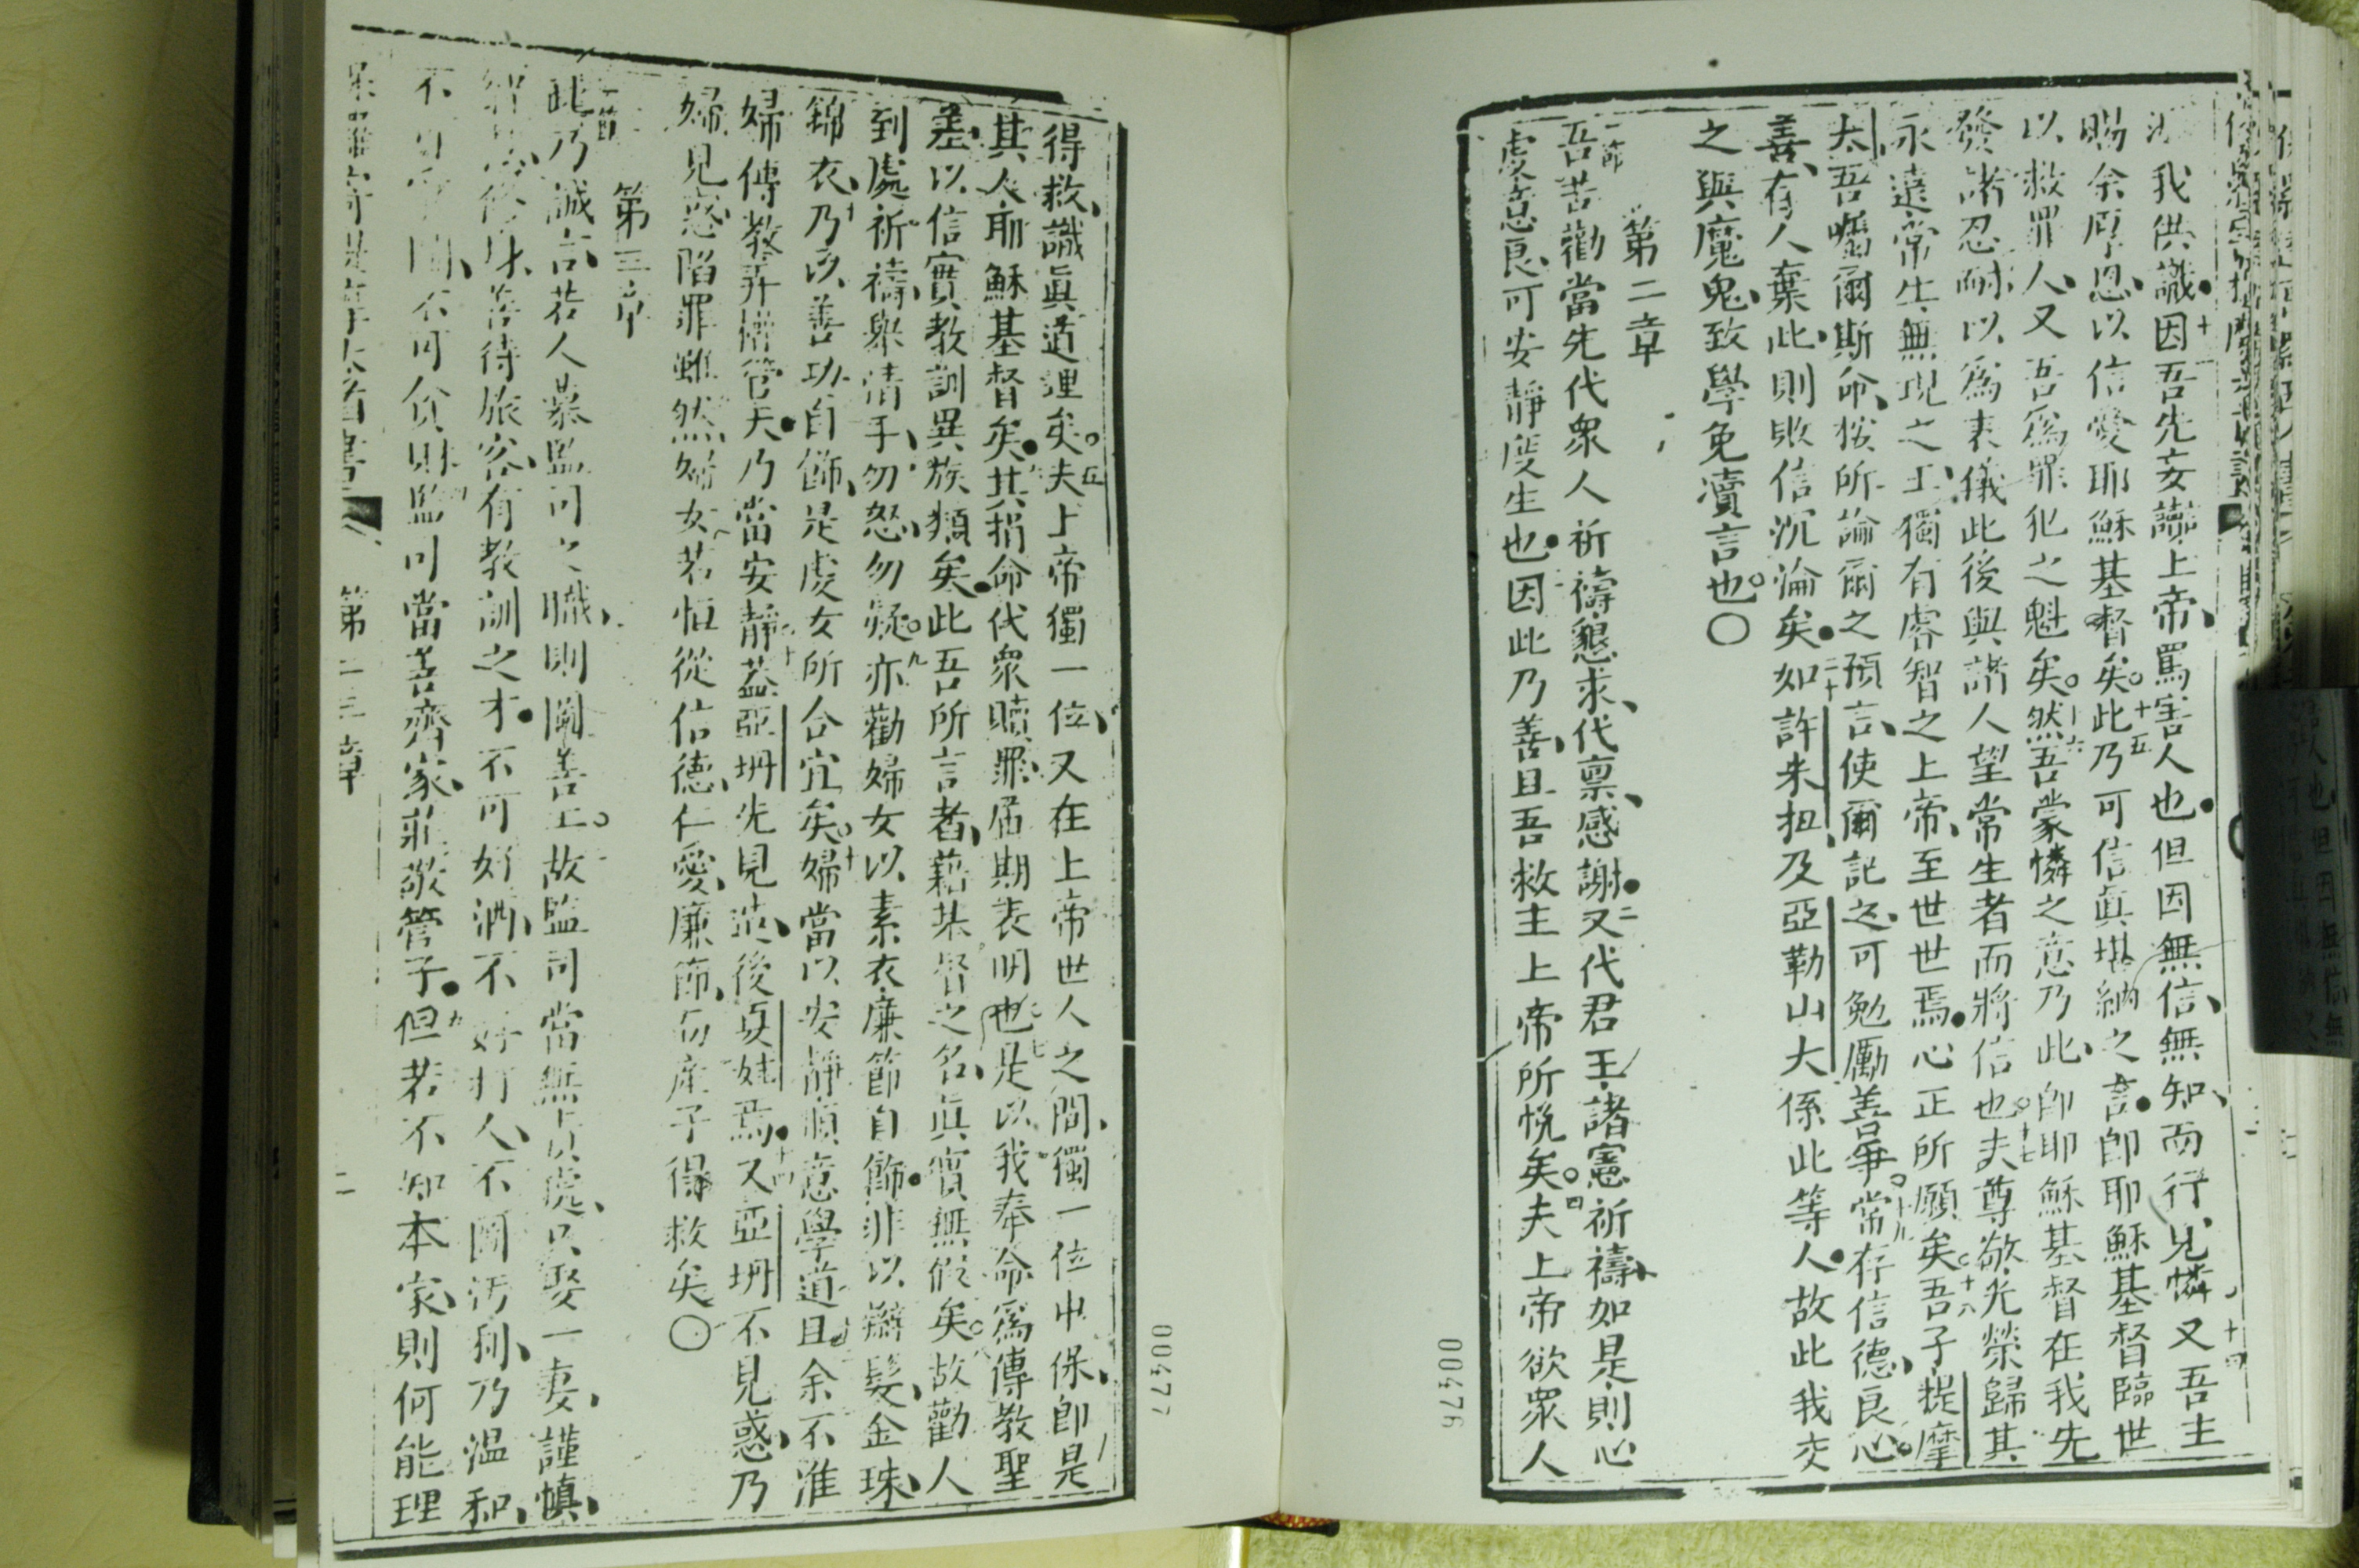 我供識因吾先妄讟上帝罵害人也但因無信無知而行見憐又吾主
賜余厚恩以信愛耶穌基督矣此乃可信眞堪納之言卽耶穌基督臨世
以救罪人又吾爲罪犯之魁矣然吾蒙憐之意乃此卽耶穌基督在我先
發諸忍耐以爲表儀此後與諸人望常生者而將信也夫尊敬光榮歸其
永遠常生無現之王獨有睿智之上帝至世世焉心正所願矣吾子提摩
太吾囑爾斯命按所論爾之預言使爾記之可勉勵善爭常存信德良心
善有人棄此則敗信沉淪矣如許朱扭及亞勒山大係此等人故此我交
之與魔鬼致學免瀆言也〇
第二章
吾苦勸當先代衆人祈禱懇求代禀感謝又代君王諸憲祈禱如是則心
虔意良可安靜度生也因此乃善且吾救主上帝所悅矣夫上帝欲衆人
00476
得救識眞道理矣夫上帝獨一位又在上帝世人之間獨一位中保卽是
其人耶穌基督矣其捐命代衆贖罪屆期表明也是以我奉命爲傳教聖
差以信實教訓異族類矣此吾所言者藉基督之名眞實無假矣故勸人
到處祈禱舉清手勿怒勿疑亦勸婦女以素衣廉節自飾非以辮髮金珠
錦衣乃以善功自飾是虔女所合宜矣婦當以安靜順意學道且余不准
婦傳教弄權管夫乃當安靜蓋亞坍先見造後夏娃焉又亞坍不見惑乃
婦見惑陷罪雖然婦女若恒從信德仁愛廉節而產子得救矣〇
第三章
此乃誠言若人慕監司之職則圖善工故監司當無責處只娶一妻謹慎
善待旅客有教訓之才不可好酒不好打人不圖污利乃温和
不可貪財監司當善齊家莊敬管子但若不知本家則何能理
第二三章
00477